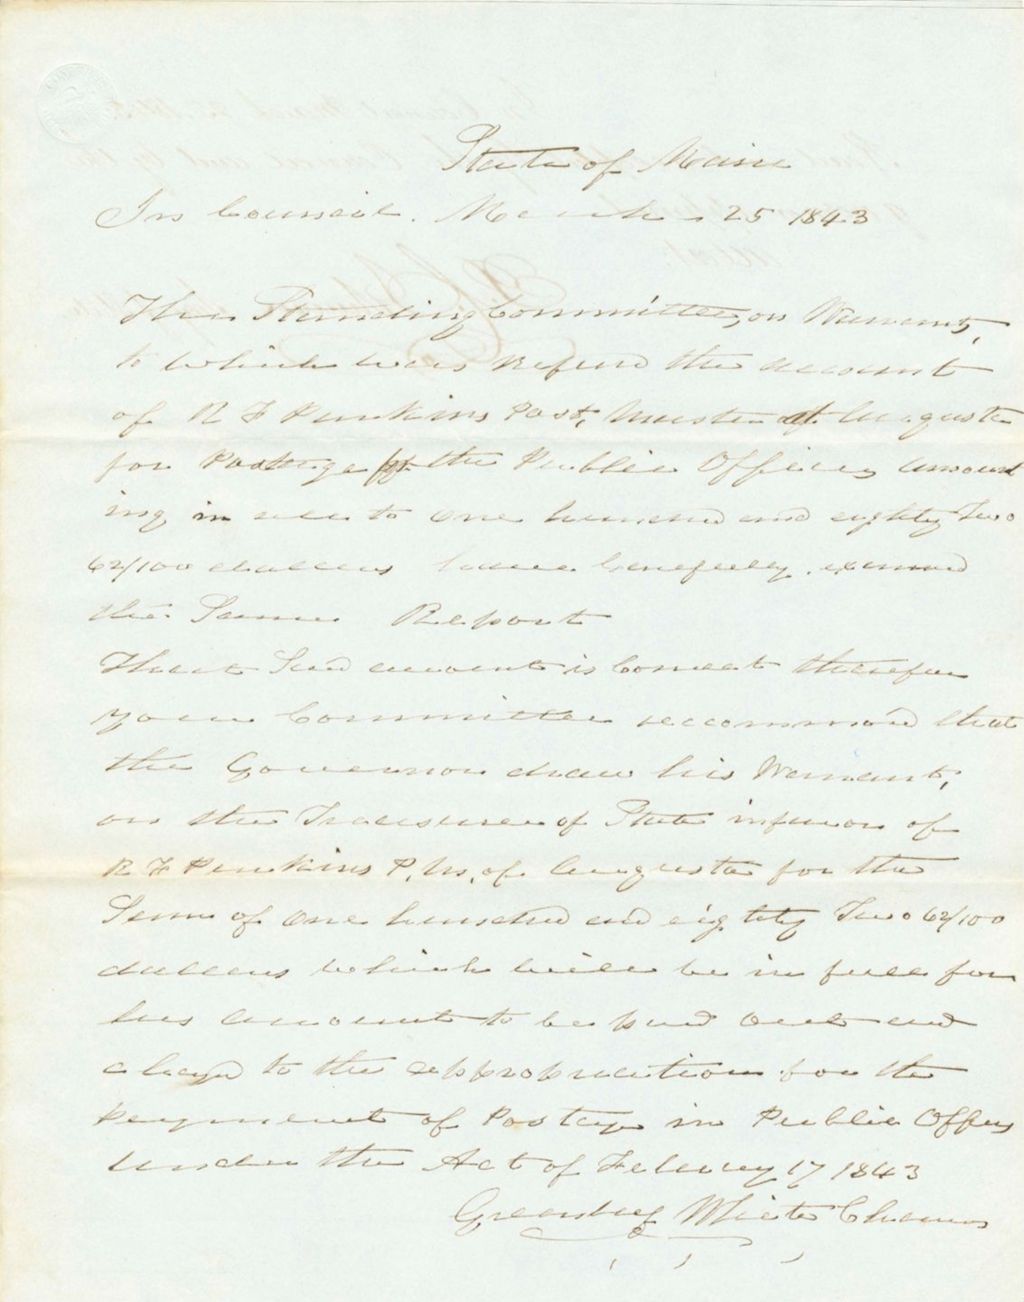 State of Maine
In Council. March 25 1843
The Standing Committee, on Warrants,
to which was Referd the account
of R F Perkins Post, Master of Augusta
for Postage of the Public Offices amount
ing in all to One hundred and eighty Two
62/100 dollars have Carefully examined
the Same Report
That Said account is Correct therefore
your Committee recommend that
the Governor draw his Warrant,
on the Treasurer of State in favor of
R F Perkins P. M. of Augusta for the
Sum of One hundred and eighty Two 62/100
dollars which will be in full for
his amount to be paid out and
chargd to the appropriation for the
payment of Postage in Public Offices
under the Act of February 17 1843
Greenlief White Chairman